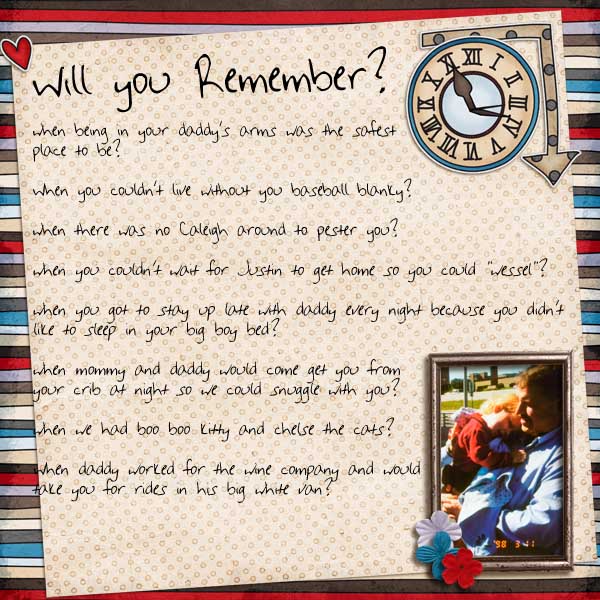 Will you Remember?
when being in your daddy's arms was the safest
place to be?
when you couldn't live without you baseball blanky?
when there was no Caleigh around to pester you?
when you couldn't wait for Justin to get home so you could "wessel"?
when you got to stay up late with daddy every night because you didn't
like to sleep in your big boy bed?
when mommy and daddy would come get you from
your crib at night so we could snuggle with you?
when we had boo boo kitty and chelse the cats?
when daddy worked for the wine company and would
take you for rides in his big white van?
XII
I
II
III
IV
V
VI
VII
VIII
IX
X
XI
'98 3 11